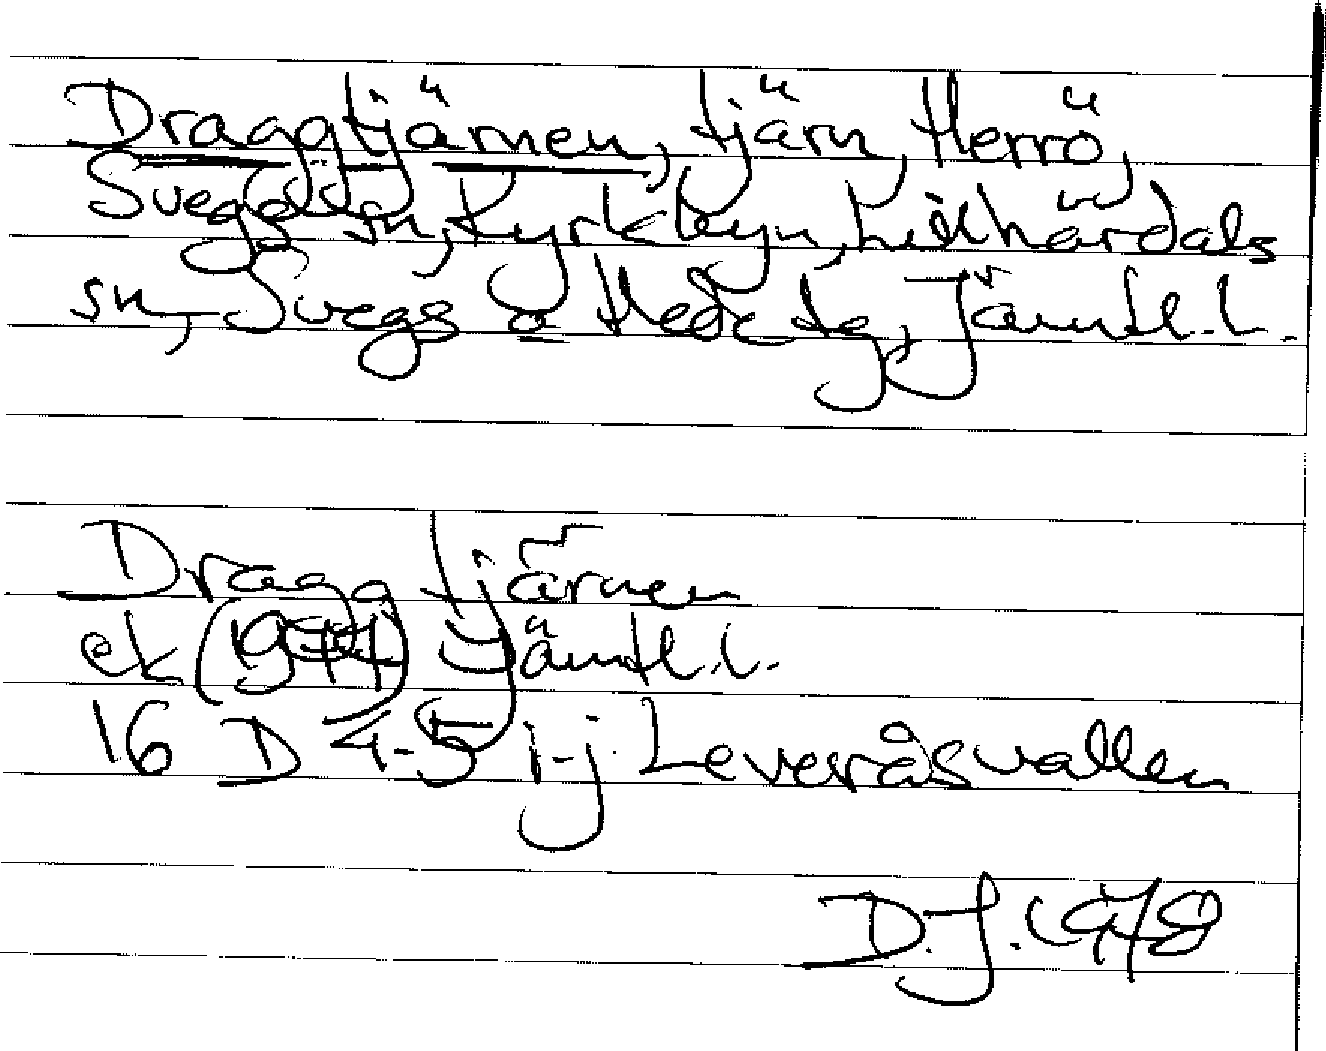 Draggtjärnen, tjärn, Herrö,
Svegs sn, Kyrkbyn, Lillhärdals
sn, Svegs o Hede tg, Jämtl.l.
Draggtjärnen
ek (1974) Jämtl.l.
16 D 4-5 i-j Leveråsvallen
D.J. 1978